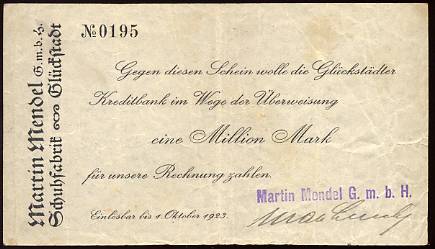 Martin Mendel G.m.b.H.
Schuhfabrik Glückstadt
№0195
Gegen diesen Schein wolle die Glückstädter
Kreditbank im Wege der Überweisung
eine Million Mark
für unsere Rechnung zahlen.
Einlösbar bis 1. Oktober 1923.
Martin Mendel G. m. b. H.